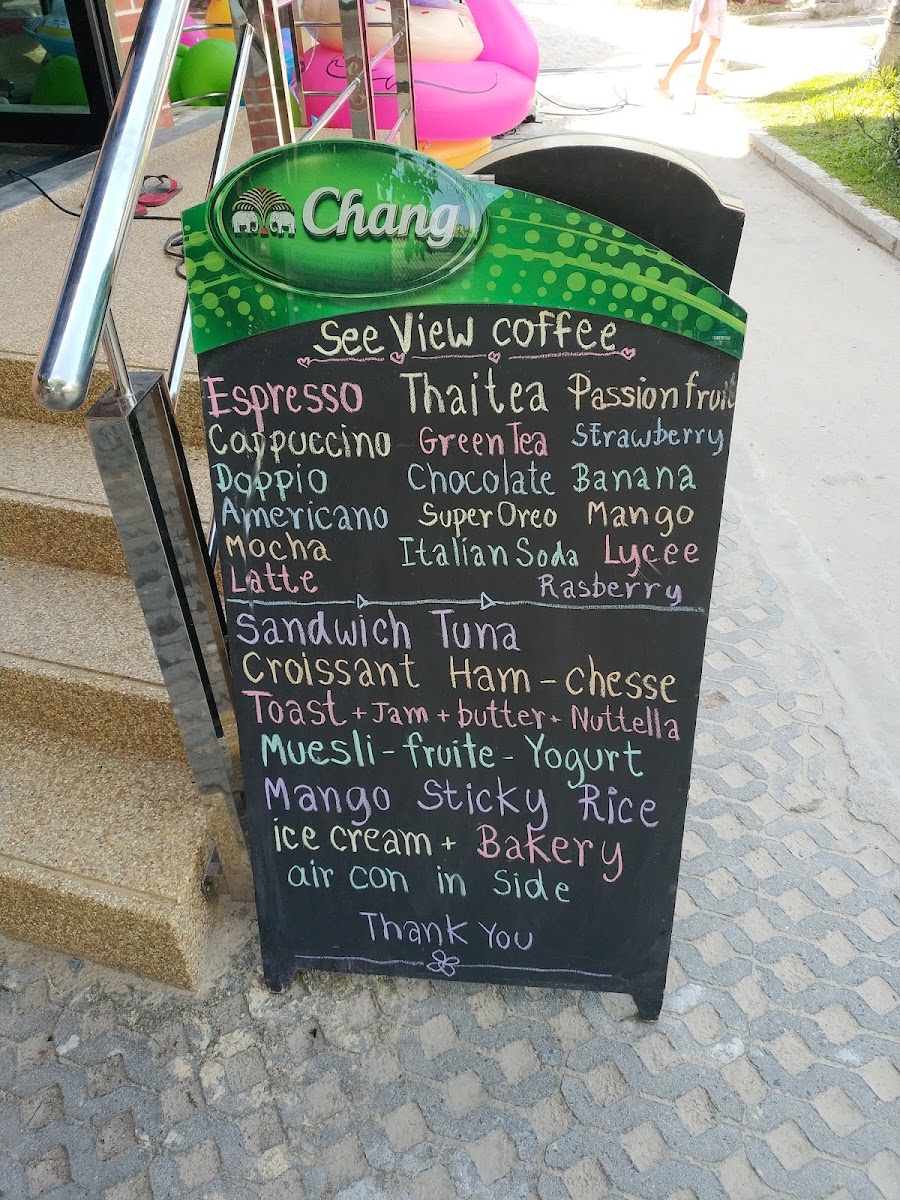 Chang
See View coffee
Espresso Thai tea Passion fruit
Cappuccino Green Tea Strawberry
Doppio Chocolate Banana
Americano Super Oreo Mango
Mocha Italian Soda Lycee
Latte Rasberry
Sandwich Tuna
Croissant Ham - chesse
Toast + Jam + butter + Nuttella
Muesli - fruite - Yogurt
Mango Sticky Rice
ice cream + Bakery
air con in Side
Thank You